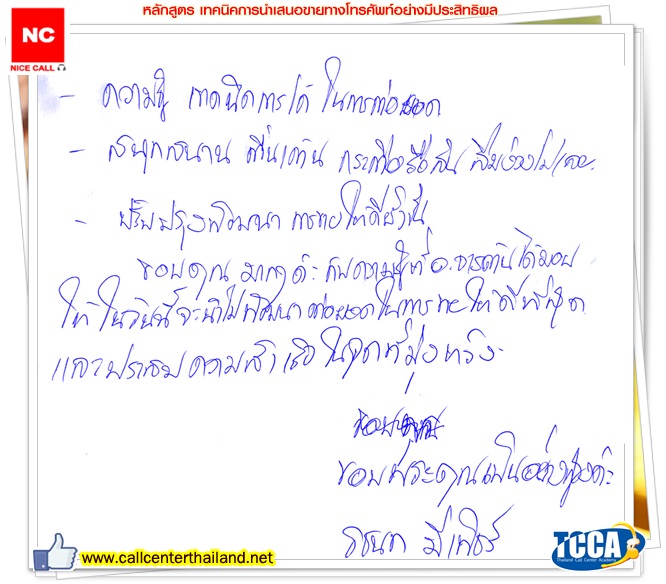 หลักสูตร เทคนิคการนำเสนอขายทางโทรศัพท์อย่างมีประสิทธิผล
NC
NICE CALL
- ความรู้ เทคนิคการได้ ในการต่อยอด
- สนุกสนาน ตื่นเต้น กระตือรือร้น ไม่ง่วงไม่เลย
- ปรับปรุงพัฒนา การขายให้ดียิ่งขึ้น
ขอบคุณ มากๆ ค่ะ กับความรู้ที่ อ.จารตันได้มอบ
ให้ ในวันนี้จะนำไปพัฒนา ต่อยอดในการขาย ให้ดีที่สุด
และประสบความสำเร็จ ในจุดที่มุ่งหวัง
ขอบคุณ
ขอบพระคุณเป็นอย่างสูงค่ะ
www.callcenterthailand.net
TCCA
Thailand Call Center Academy